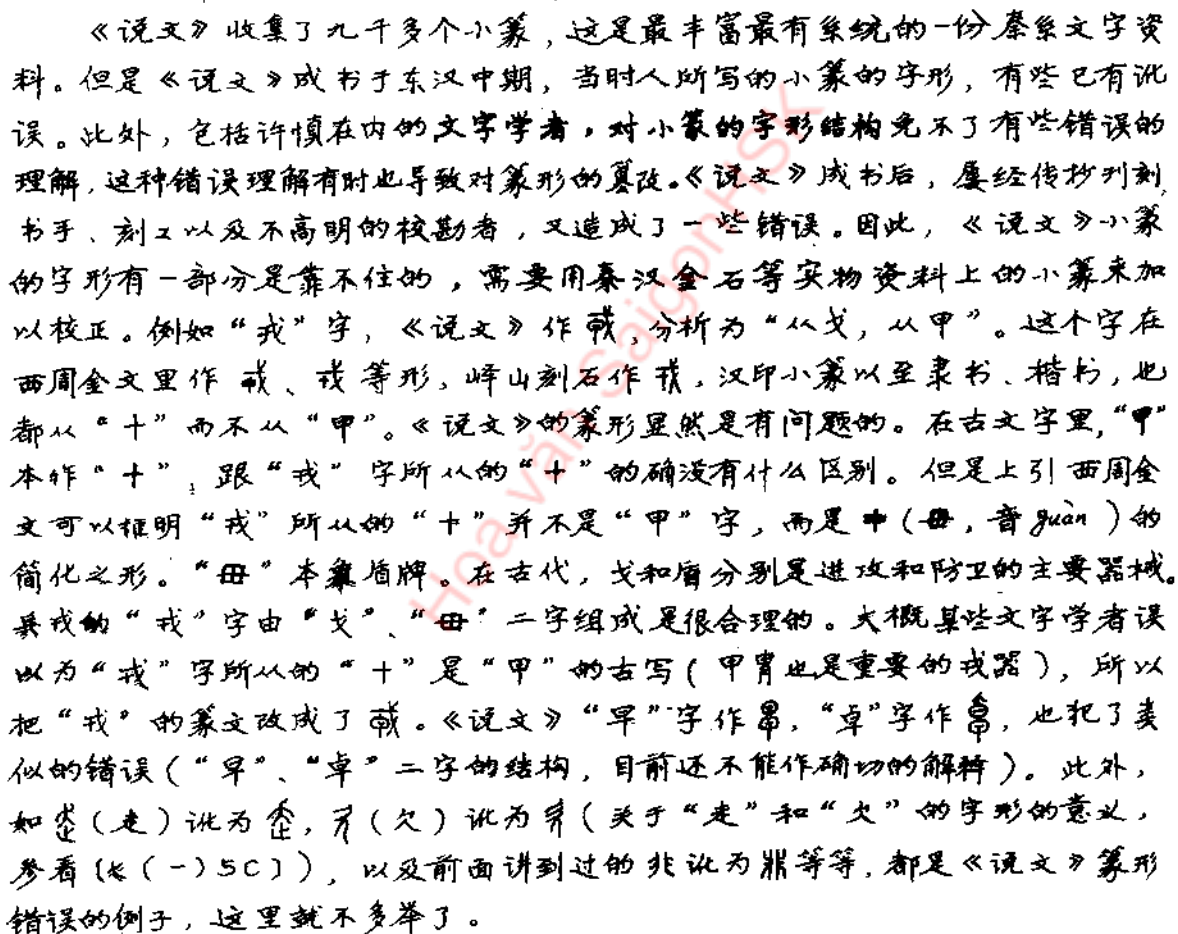 《说文》收集了九千多个小篆,这是最丰富最有系统的一份秦系文字资
料。但是《说文》成书于东汉中期,当时人所写的小篆的字形,有些已有讹
误。此外,包括许慎在内的文字学者,对小篆的字形结构免不了有些错误的
理解,这种错误理解有时也导致对篆形的篡改。《说文》成书后,屡经传抄刊刻,
书手、刻工以及不高明的校勘者,又造成了一些错误。因此,《说文》小篆
的字形有一部分是靠不住的,需要用秦汉金石等实物资料上的小篆来加
以校正。例如“戎”字,《说文》作,分析为“从戈,从甲”。这个字在
西周金文里作、等形,峄山刻石作,汉印小篆以至隶书、楷书,也
都从“十”而不从“甲”。《说文》的篆形显然是有问题的。在古文字里,“甲”
本作“十”,跟“戎”字所从的“十”的确没有什么区别。但是上引西周金
文可以证明“戎”所从的“十”并不是“甲”字,而是(毌,音guàn)的
简化之形。“毌”本象盾牌。在古代,戈和盾分别是进攻和防卫的主要器械。
兵戎的“戎”字由“戈”、“毌”二字组成是很合理的。大概某些文字学者误
以为“戎”字所从的“十”是“甲”的古写(甲胄也是重要的戎器),所以
把“戎”的篆文改成了。《说文》“早”字作,“卓”字作,也犯了类
似的错误(“早”、“卓”二字的结构,目前还不能作确切的解释)。此外,
如(走)讹为,(欠)讹为(关于“走”和“欠”的字形的意义,
参看[(一)5C]),以及前面讲到过的讹为等等,都是《说文》篆形
错误的例子,这里就不多举了。
Hoa văn SaigonHSK